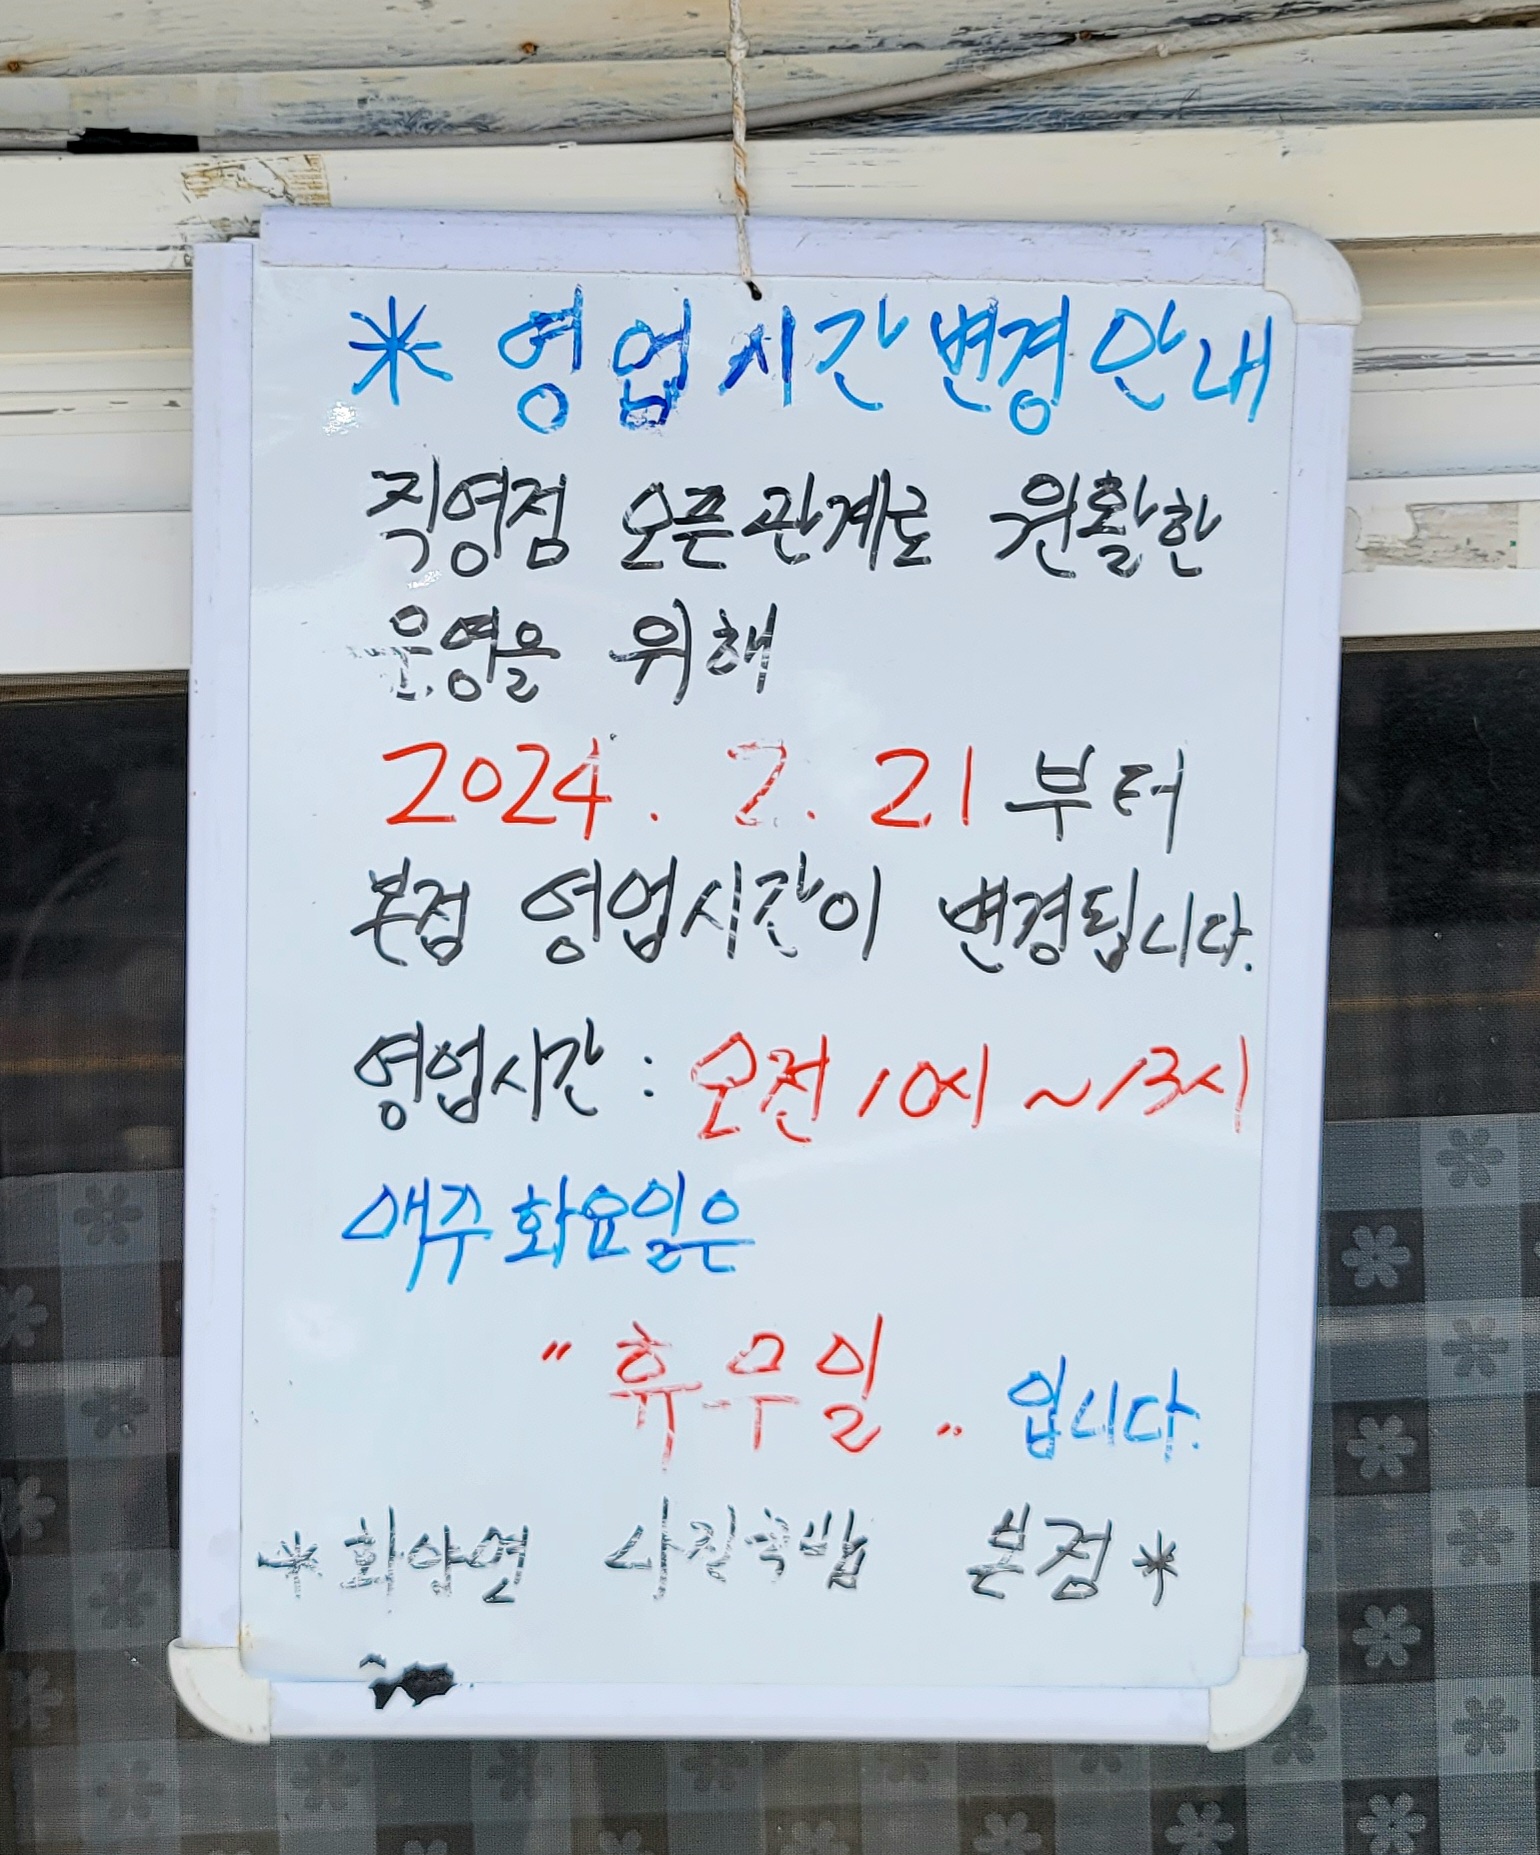 * 영업시간변경안내
직영점 오픈관계로 원활한
운영을 위해
2024. 2. 21부터
본점 영업시간이 변경됩니다.
영업시간 : 오전 10시 ~ 13시
매주 화요일은
" 휴무일 " 입니다.
* 화양연 사진국밥 본점 *